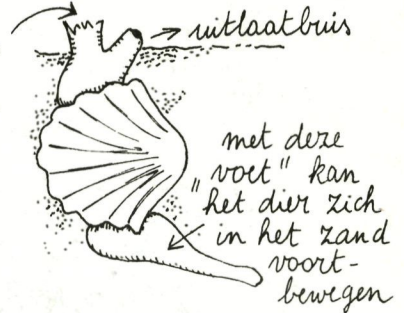 → uitlaatbuis
met deze
voet" kan
"het dier zich
in het zand
voort-
bewegen